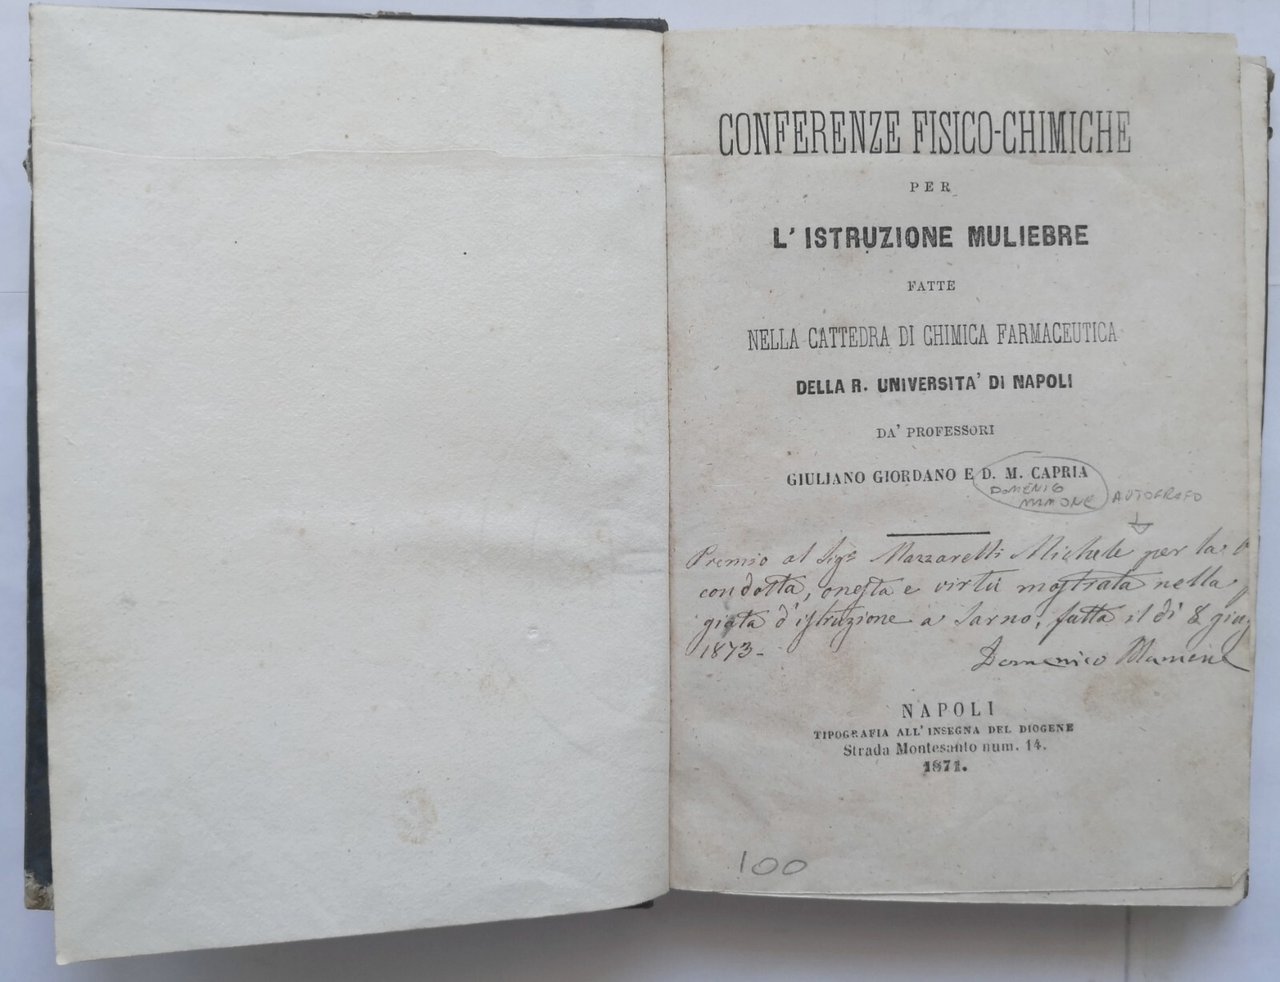 CONFERENZE FISICO-CHIMICHE
PER
L' ISTRUZIONE MULIEBRE
FATTE
NELLA CATTEDRA DI CHIMICA FARMACEUTICA
DELLA R. UNIVERSITA' DI NAPOLI
DA' PROFESSORI
GIULIANO GIORDANO E D. M. CAPRIA
DOMENICO
MAMONE
AUTOGRAFO
Premio al Sigr Mazzarelli Michele per la
condotta, onestà e virtù mostrata nella
giata d'istruzione a Sarno, fatta il dì 8 giug
1873-
Domenico Mamone
NAPOLI
TIPOGRAFIA ALL' INSEGNA DEL DIOGENE
Strada Montesanto num. 14.
1871.
100